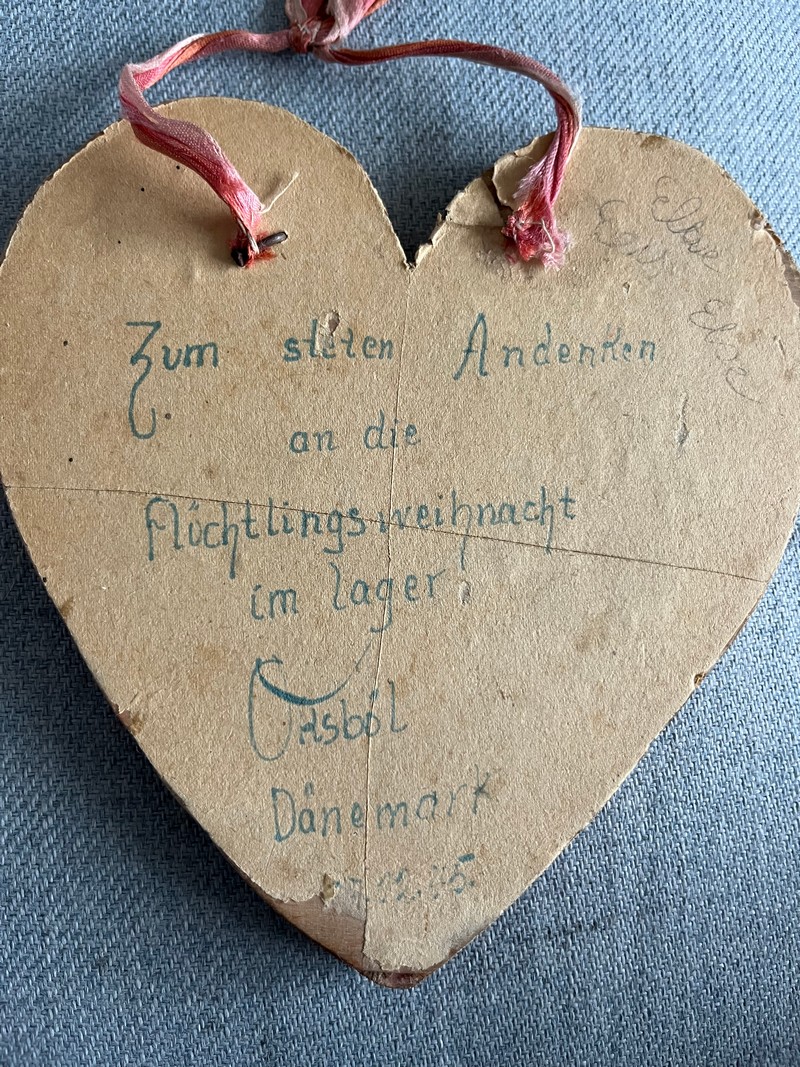 Zum steten Andenken
an die
Flüchtlingsweihnacht
im lager!
Oksböl
Dänemark
12.45.